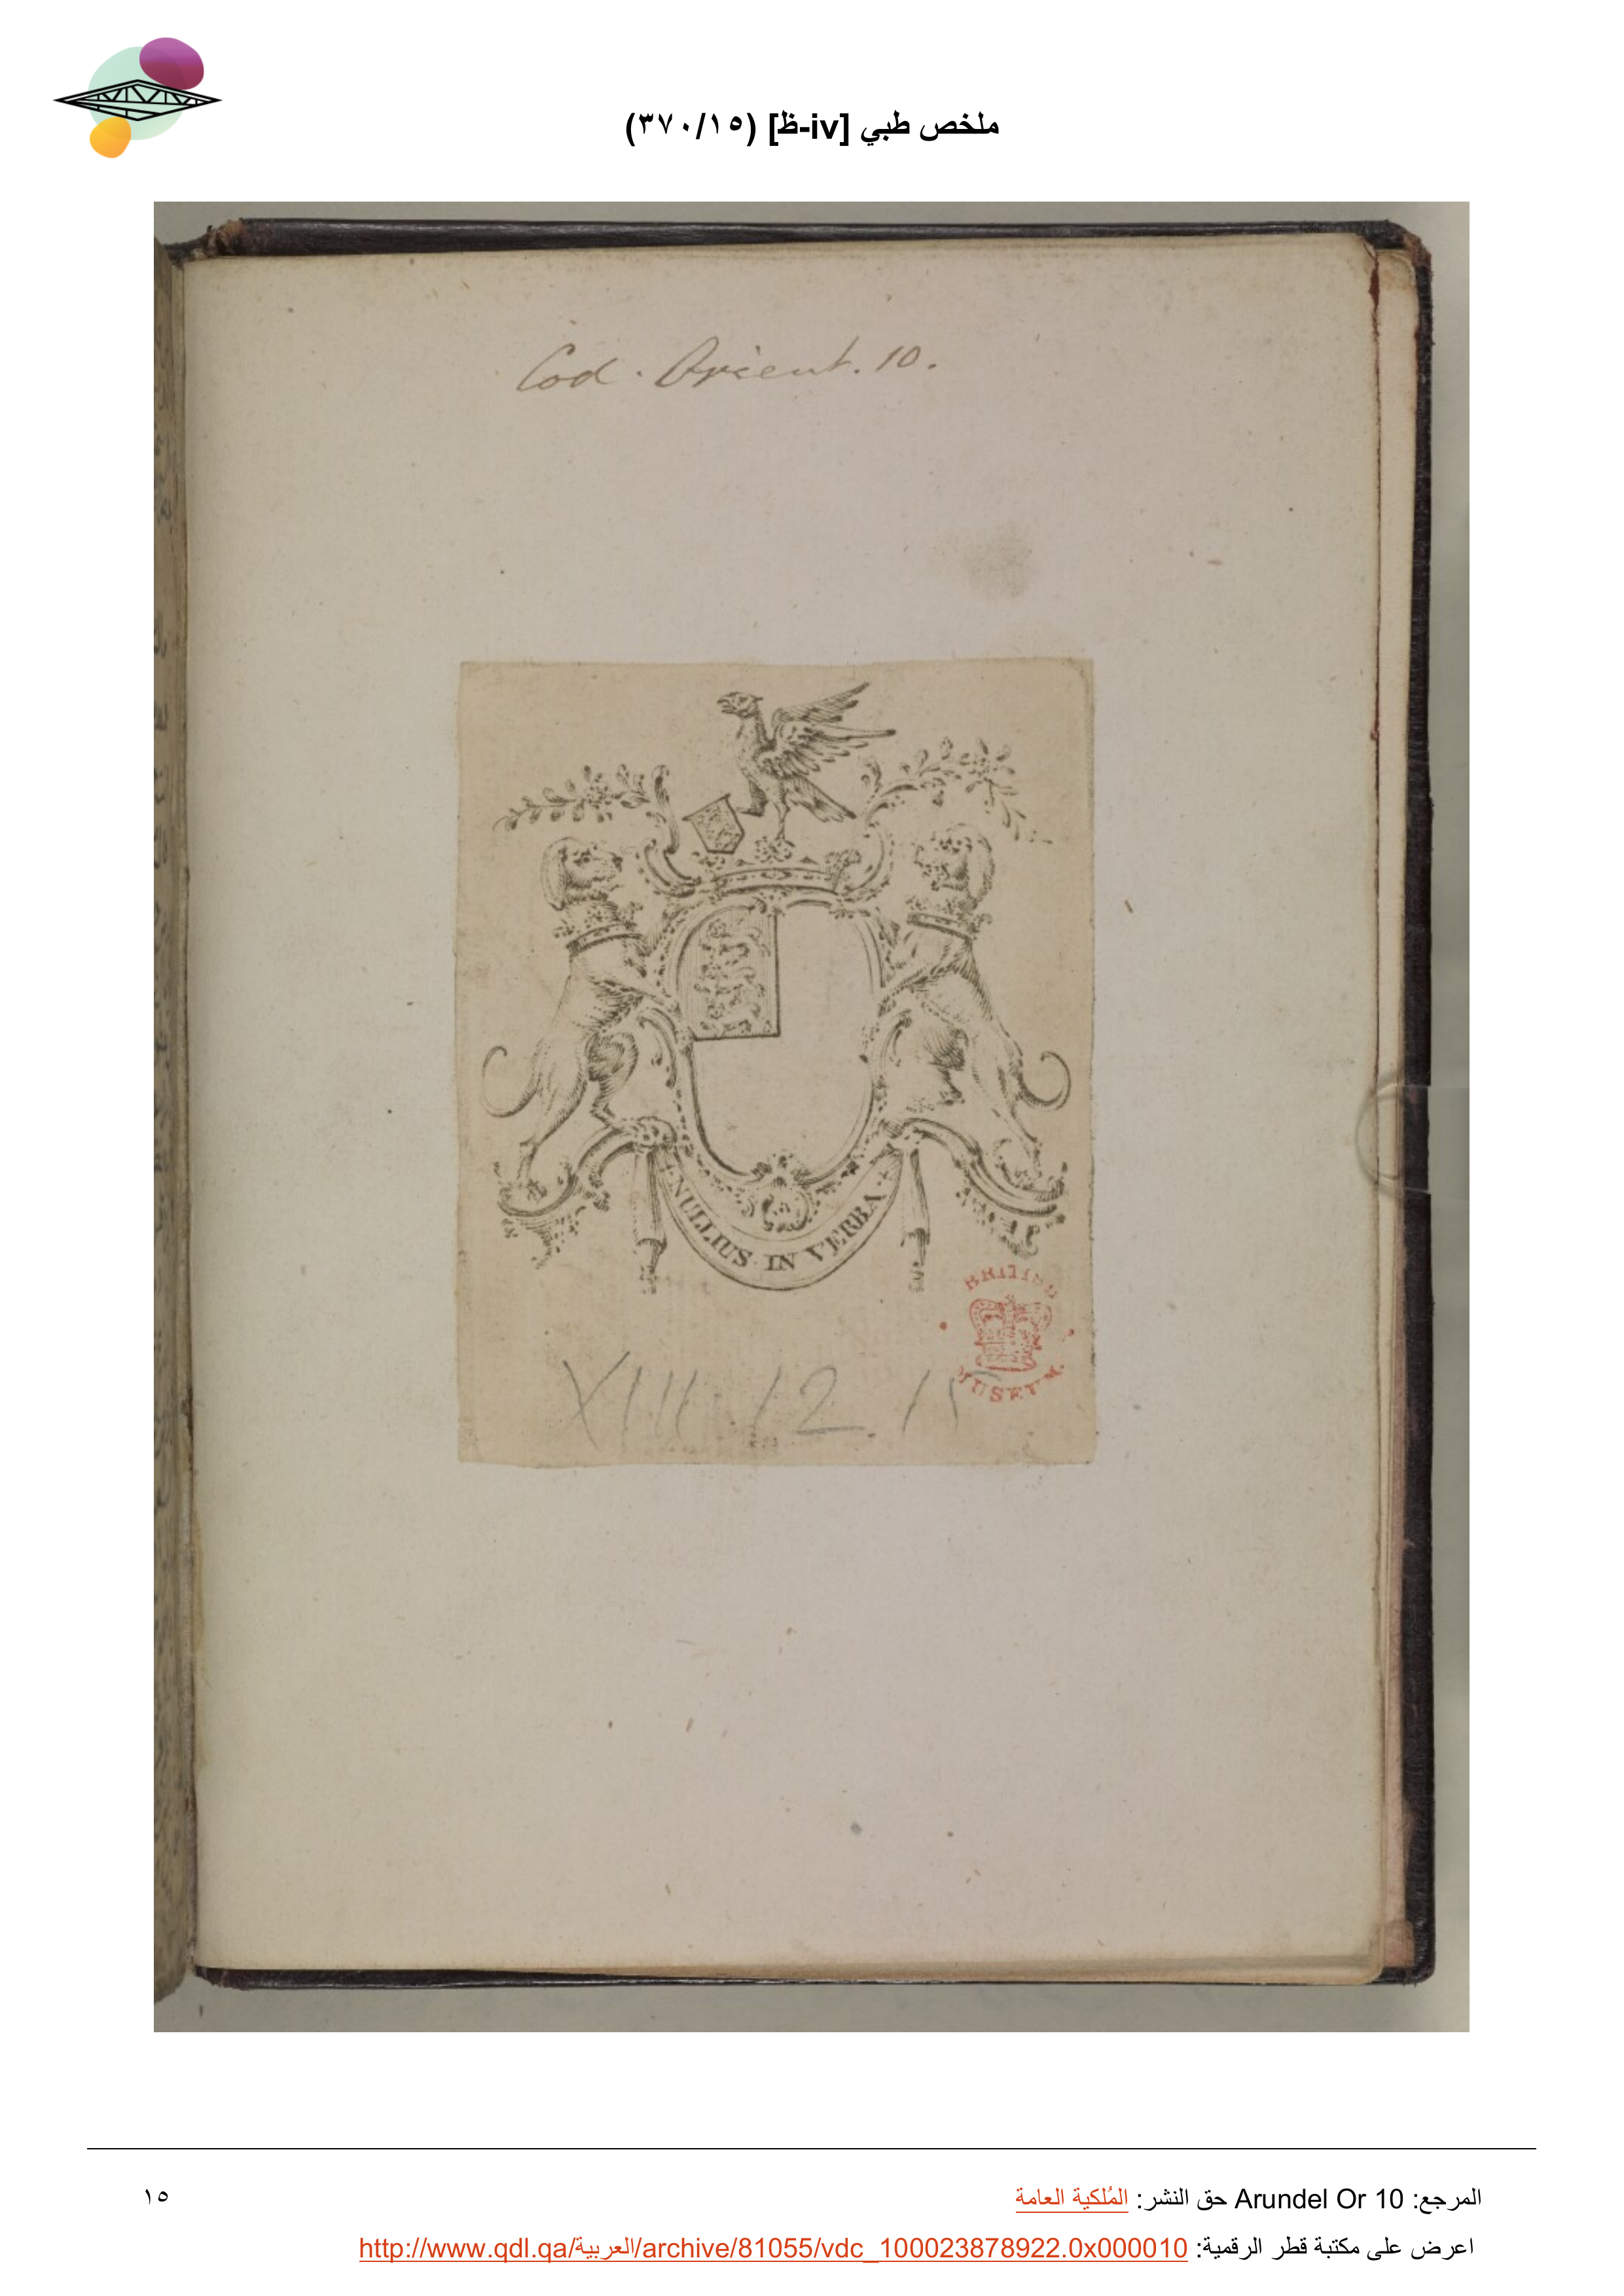 ملخص طبي [iv-ظ] (٣٧٠/١٥)
Cod. Orient. 10.
NULLIUS IN VERBA
BRITISH
MUSEUM
XIII 12. 15
المرجع: Arundel Or 10 حق النشر: المُلكية العامة
١٥
اعرض على مكتبة قطر الرقمية: http://www.qdl.qa/العربية/archive/81055/vdc_100023878922.0x000010